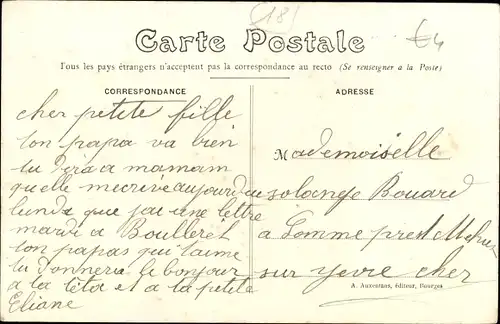 (18)
€4
Carte Postale
Tous les pays étrangers n'acceptent pas la correspondance au recto (Se renseigner a la Poste)
CORRESPONDANCE
cher petite fille
ton papa va bien
tu dira a mamam
quelle mecrive aujourdau
lundi que jai une lettre
mardi a Boulleret
ton papas qui taime
tu donnera le bonjour
a la téta et a ta petite
Eliane
ADRESSE
Mademoiselle
solange Bouard
a Somme prest Mehun
sur yevre cher
A. Auxenfans, éditeur, Bourges